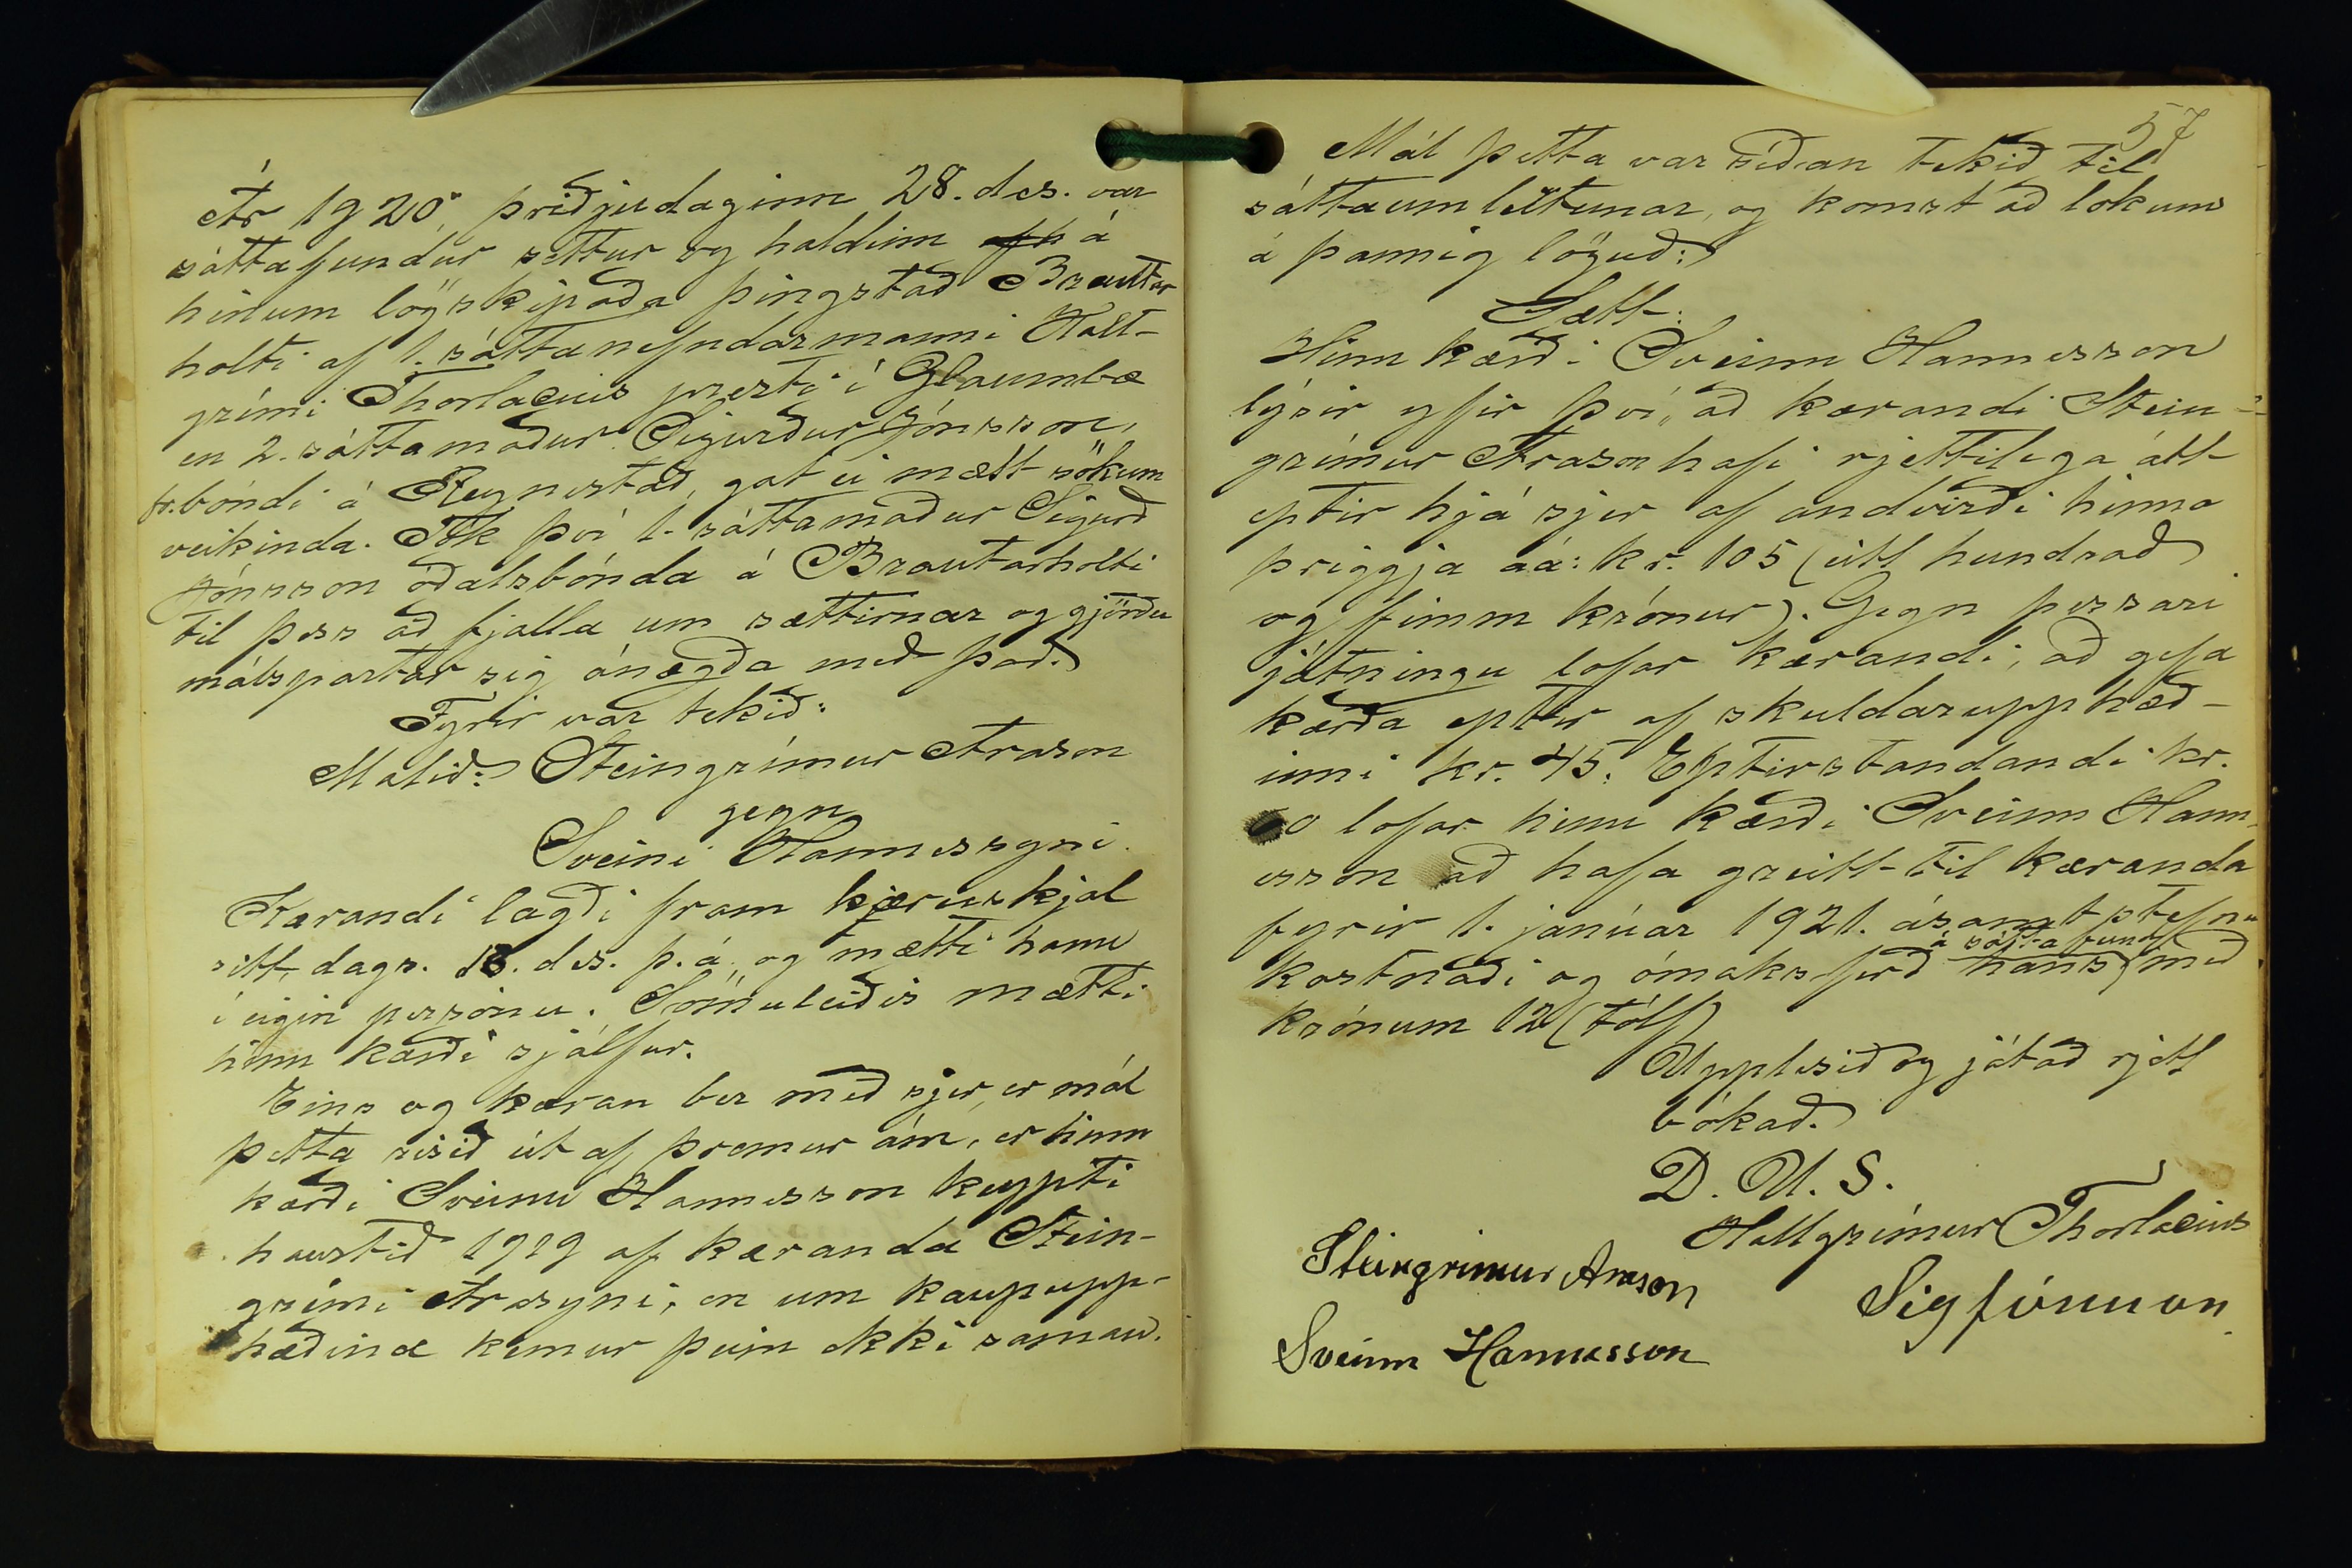 Ár 1920, þriðjudaginn 28. des. var
sáttafundur settur og haldinn á
hinum lögskipaða þingstað Brautar
holti af 1. sáttanefndarmanni Hall-
grími Thorlacius presti í Glaumbæ
en 2. sáttamaður Sigurður Jónsson,
fr. bóndi á Reynistað, gat ei mætt sökum
veikinda. Tók því 1. sáttamaður Sigurð
Jónsson óðalsbónda á Brautarholti
til þess að fjalla um sættirnar og gjörðu
málspartar sig ánægða með það.
Fyrir var tekið:
Malið: Steingrímur Arason
gegn
Sveini Hannessyni.
Kærandi lagði fram kæruskjal
sitt, dags. 18. des. þ. á. og mætti hann
í eigin persónu. Sömuleiðis mætti
hinn kærði sjálfur.
Eins og kæran ber með sjer, er mál
þetta risið út af þremur ám, er hinn
kærði Sveinn Hannesson keypti
haustið 1919 af kæranda Stein-
grími Arasyni, en um kaupupp-
hæðina kemur þeim ekki saman.
57
Mál þetta var síðan tekið til
sáttaumleitunar, og komst að lokum
á þannig löguð:
Sætt:
Hinn kærði Sveinn Hannesson
lýsir yfir því, að kærandi Stein-
grímur Arason hafi rjettilega átt
eptir hjá sjer af andvirði hinna
þriggja áa: kr. 105 (eitt hundrað
og fimm krónur). Gegn þessari
játningu lofar kærandi, að gefa
kærða eptir af skuldarupphæð-
inni kr. 45. Eptirstandandi kr.
60 lofar hinn kærði Sveinn Hann-
esson að hafa greitt til kæranda
fyrir 1. janúar 1921. ásamt stefnu
kostnaði og ómaksferð hans á sáttafund með
krónum 12 (tólf)
Upplesið og játað rjett
bókað.
D. U. S.
Hallgrímur Thorlacius
Steingrímur Arason
Sig Jónsson
Sveinn Hannesson